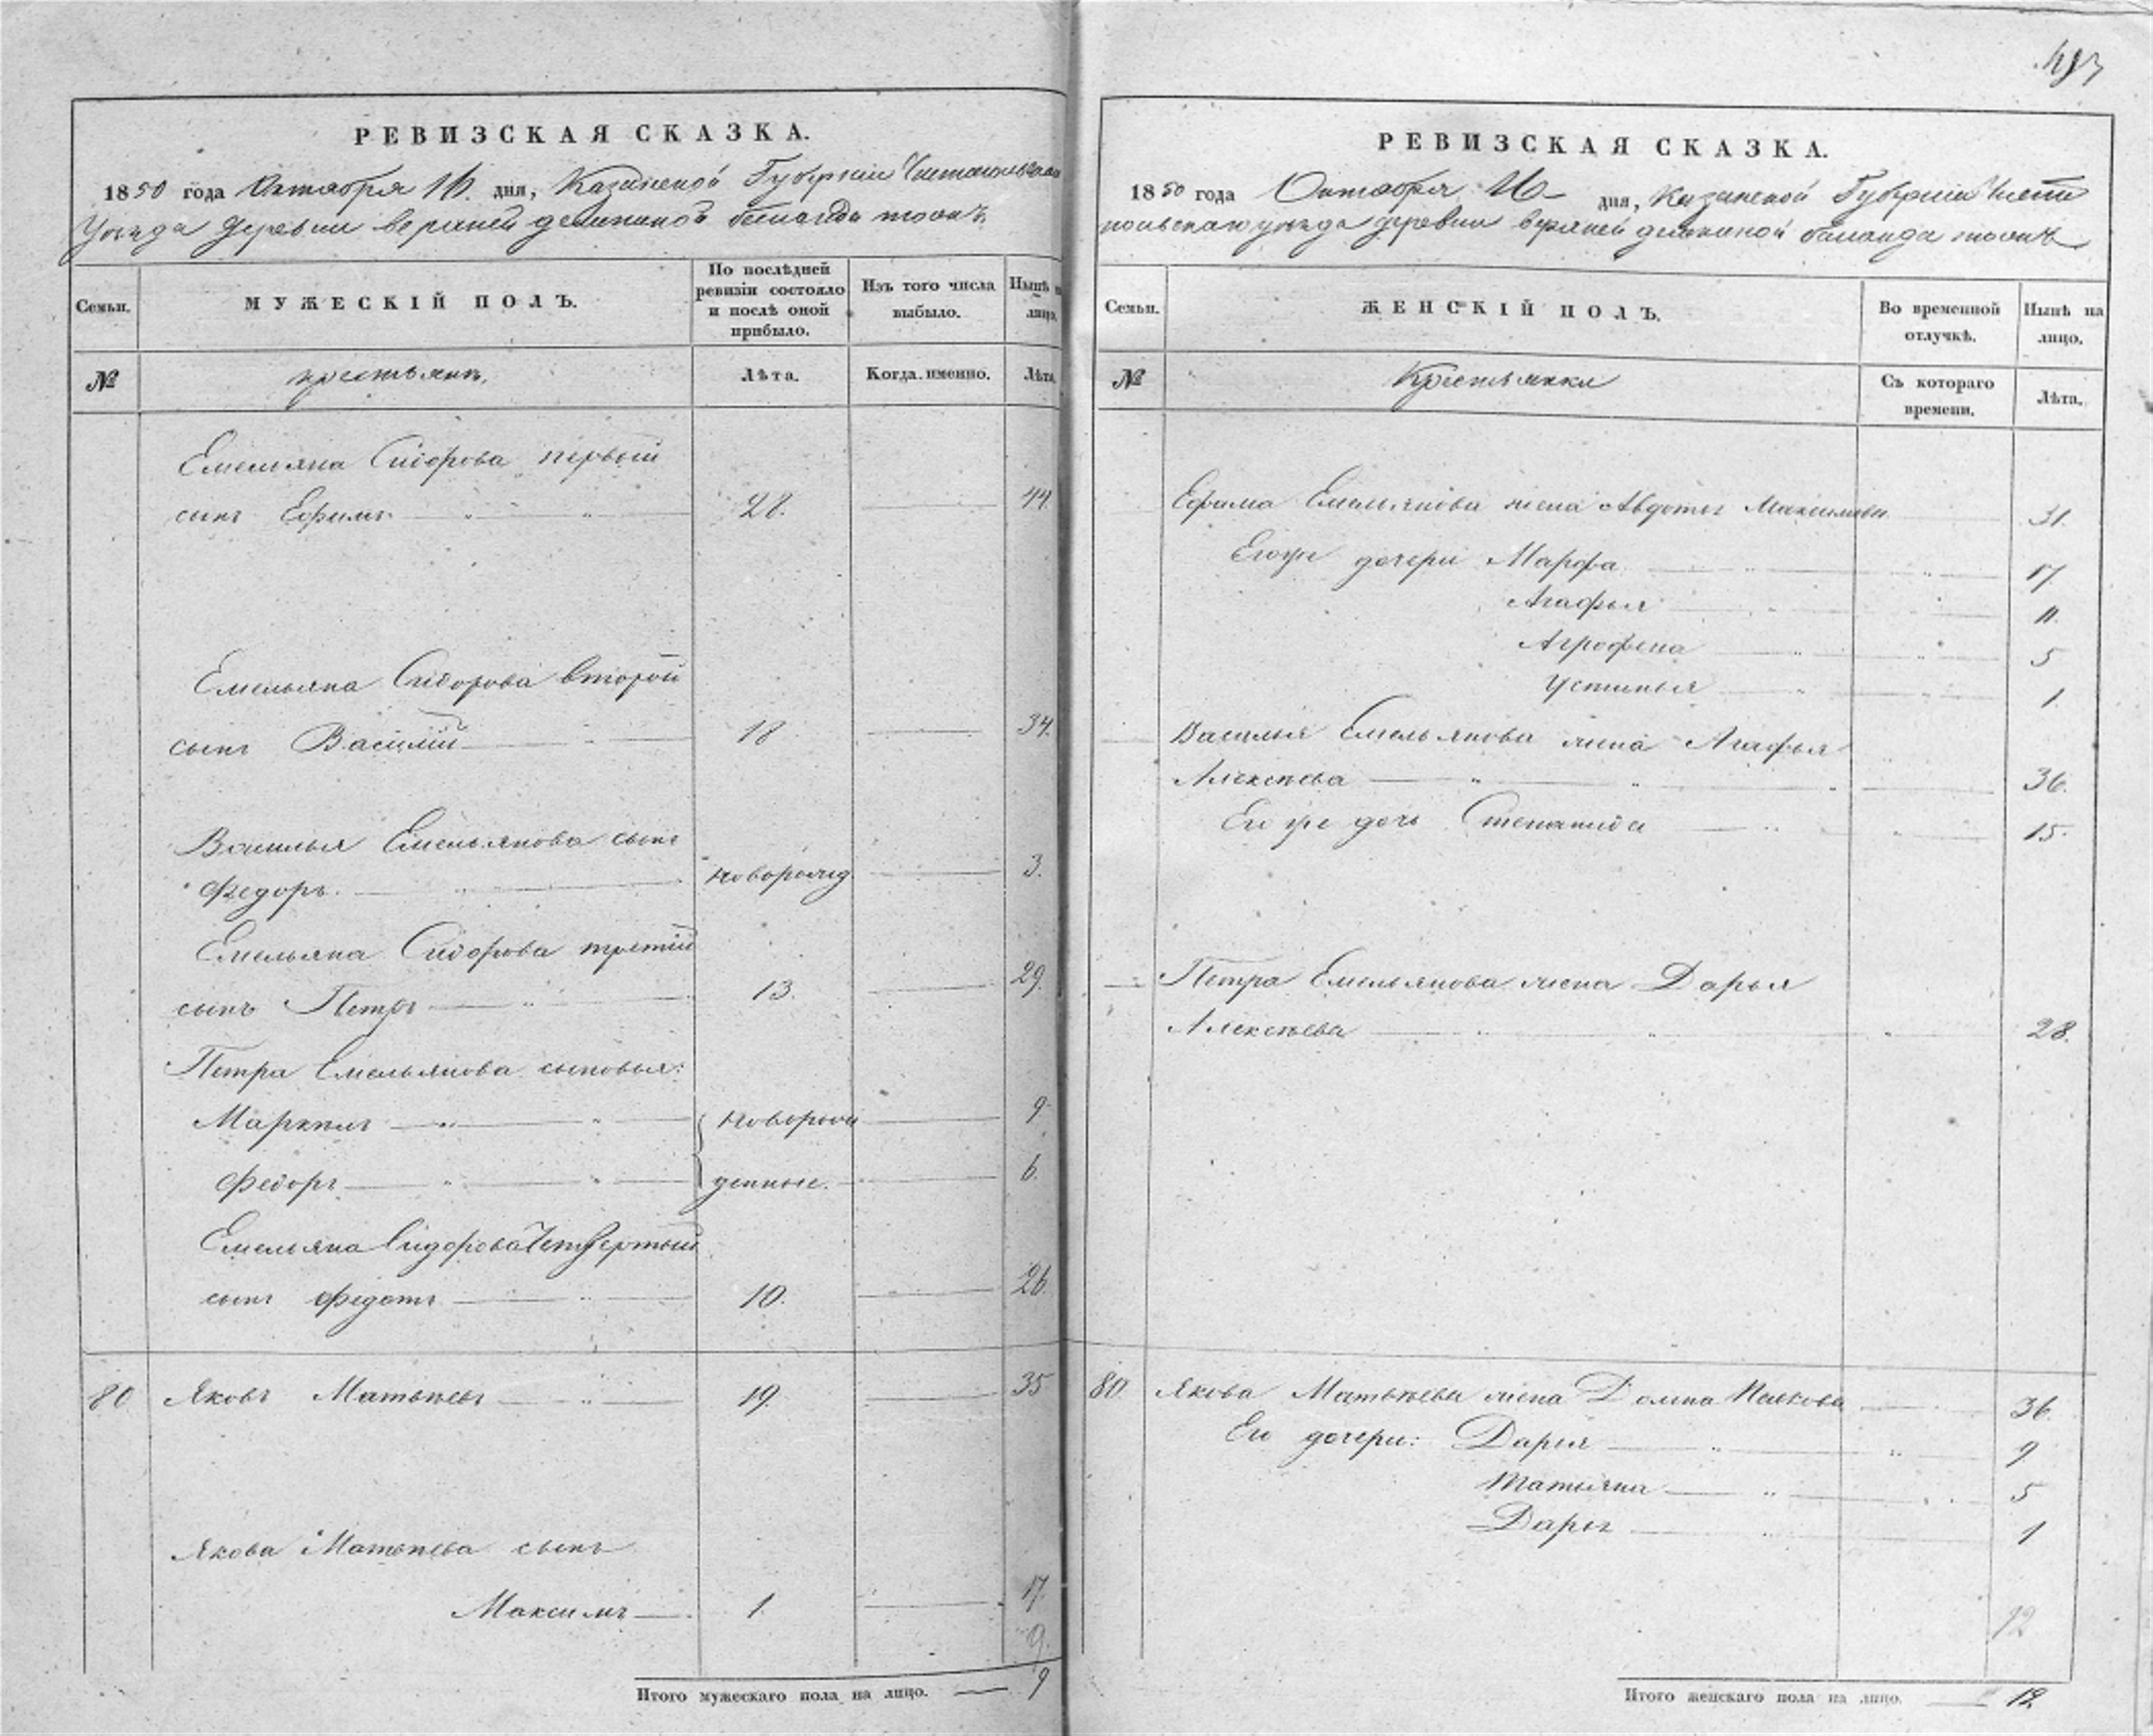 РЕВИЗСКАЯ СКАЗКА.
1850 года Октября 16. дня, Казанской Губернии Чистопольскаго
Уѣзда деревни верхней
Семьи.
МУЖЕСКІЙ ПОЛЪ.
По послѣдней ревизіи состояло и послѣ оной прибыло.
Изъ того числа выбыло.
Нынѣ на лицо.
№
крестьянъ.
Лѣта.
Когда именно.
Лѣта.
Емельяна Сидорова первый
сынъ Ефимъ 28. 44
Емельяна Сидорова второй
сынъ Василій 18 34.
Василья Емельянова сынъ
Федоръ. новорожд 3.
Емельяна Сидорова третій
сынъ Петръ 13. 29.
Петра Емельянова сыновья:
Маркелъ новорож 9.
Федоръ денные. 6.
Емельяна Сидорова Четвертый
сынъ Федотъ 10. 26
80 Яковъ Матвѣевъ 19. 35
Якова Матвѣева сынъ
Максимъ 1. 17.
9.
Итого мужескаго пола на лицо. 9
РЕВИЗСКАЯ СКАЗКА.
1850 года Октября 16 дня, Казанской Губерніи Чисто
польскаго уѣзда деревни верхней
Семьи.
ЖЕНСКІЙ ПОЛЪ.
Во временной отлучкѣ.
Нынѣ на лицо.
№
Крестьянки
Съ котораго времени.
Лѣта.
Ефима Емельянова жена Авдотья Максимова 31
Егоже дочери Марфа 17.
Агафья 11.
Агрофена 5
Устинья 1.
Василья Емельянова жена Агафья
Алексѣева 36.
Его же дочь Степанида 15.
Петра Емельянова жена Дарья
Алексѣева 28.
80 Якова Матвѣева жена Домна 36.
Его дочери: Дарья 9
Татьяна 5
Дарья 1
12
Итого женскаго пола на лицо. 12